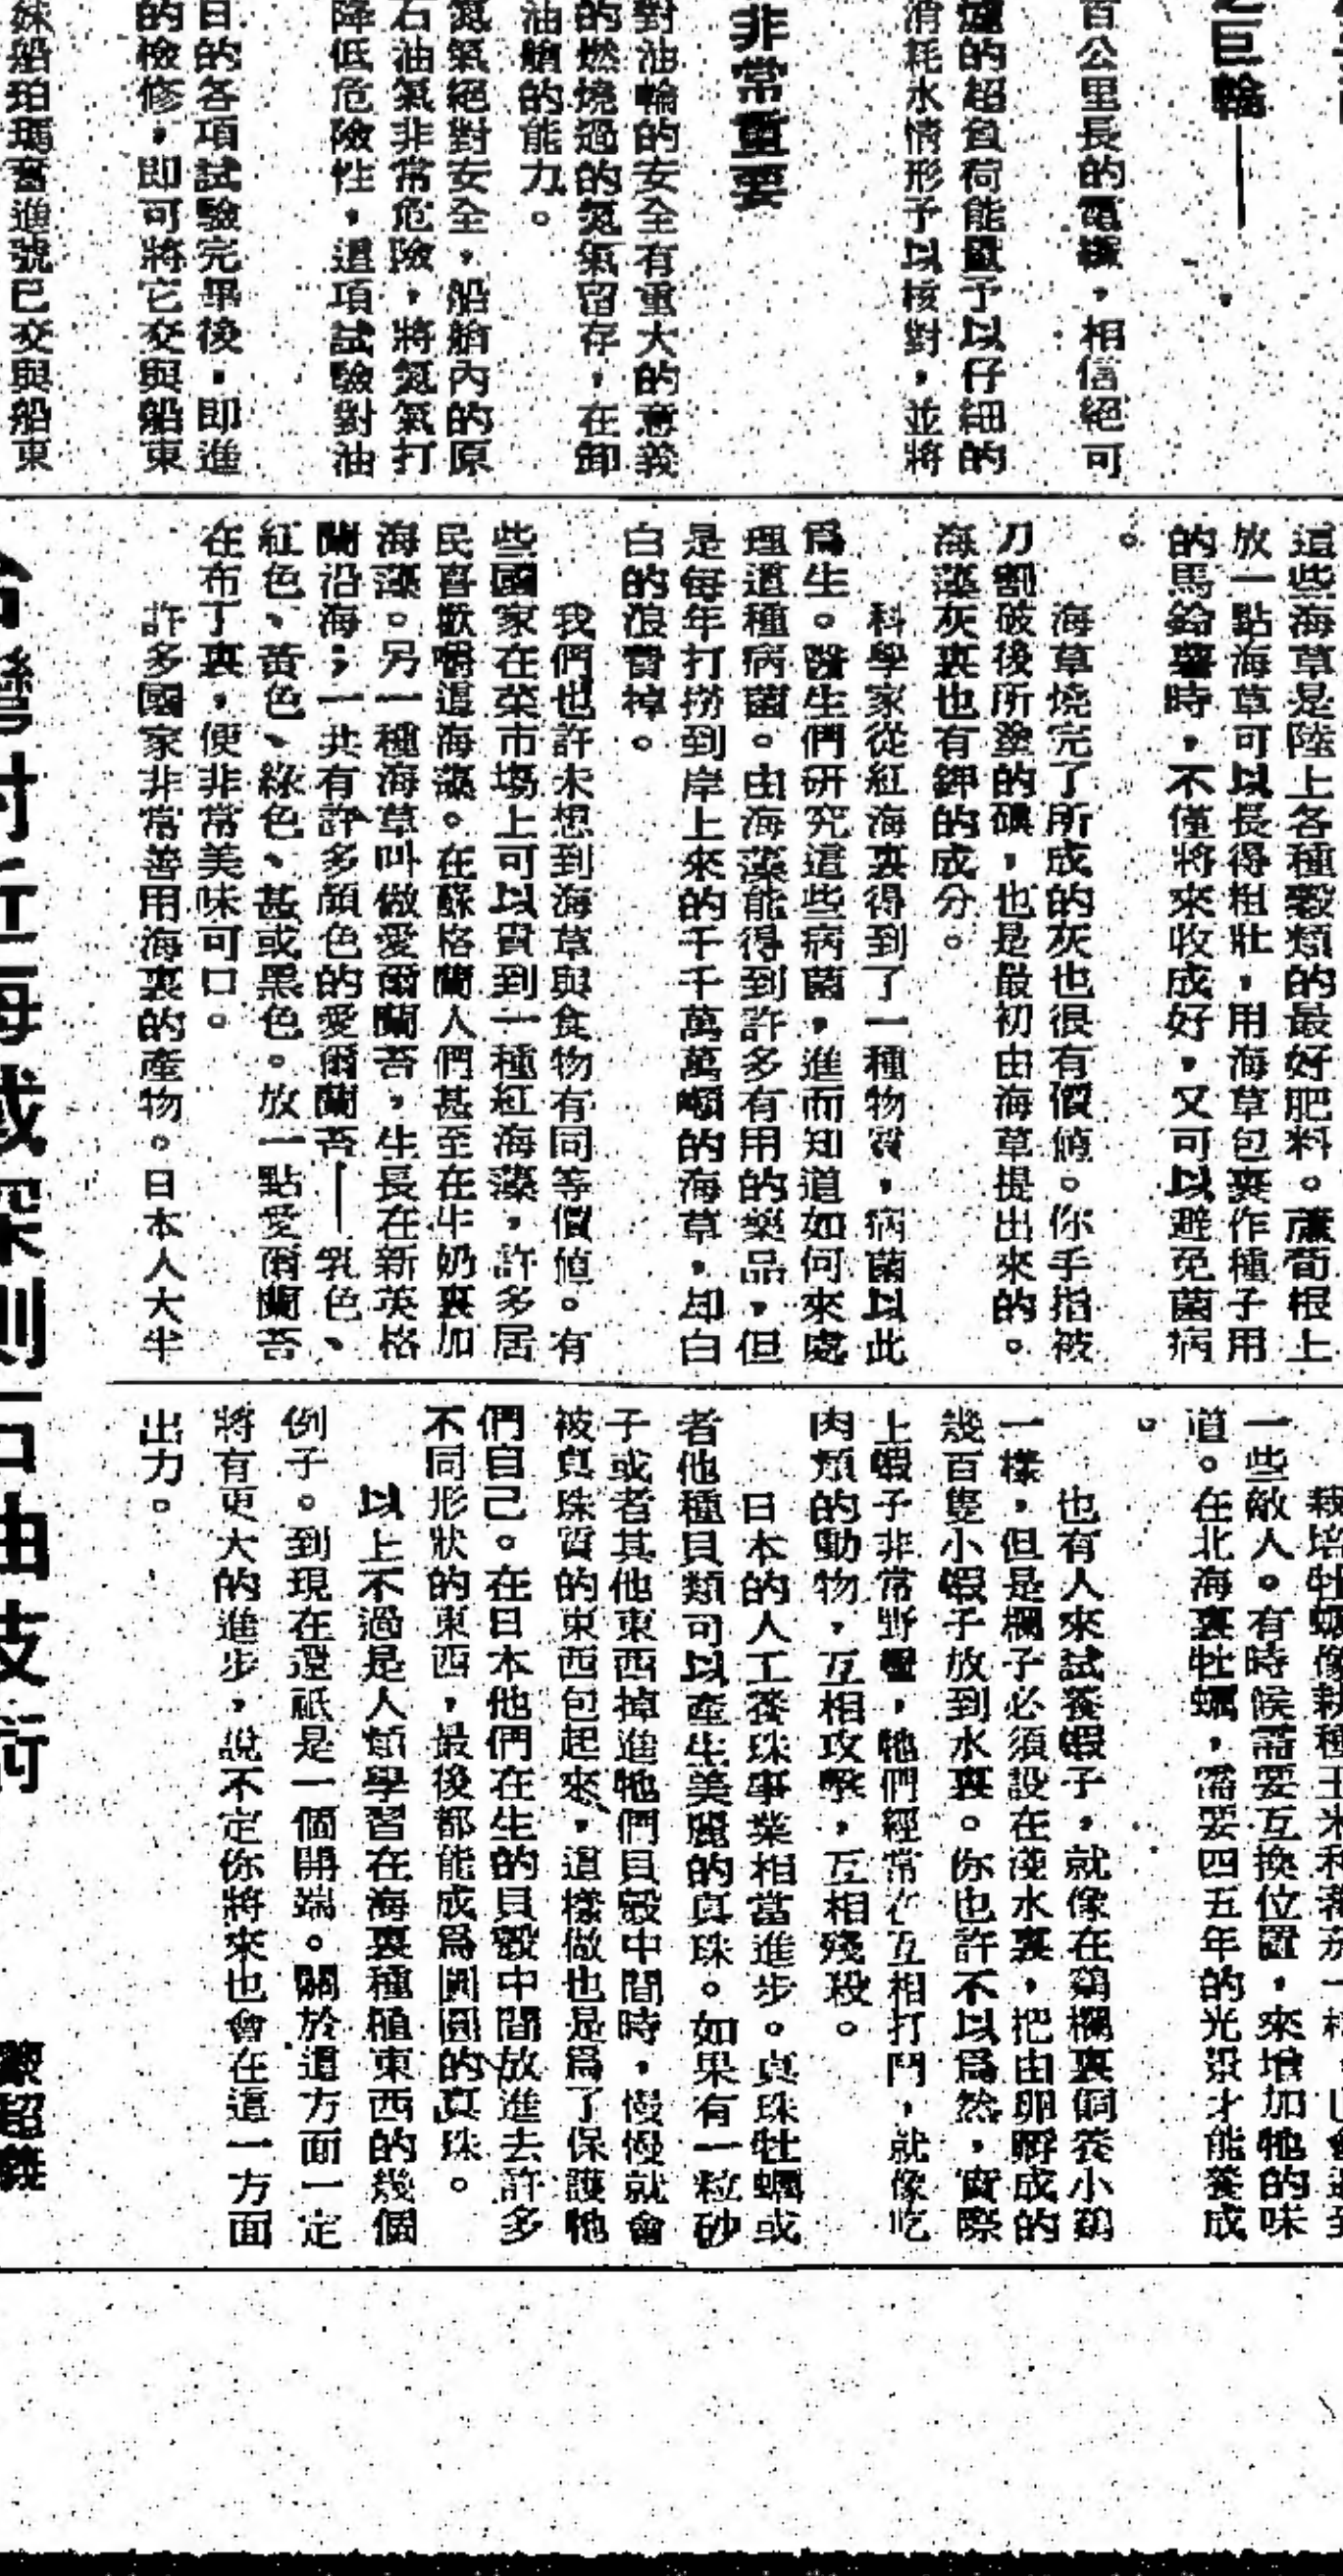 之巨輪——
百公里長的電纜，相信絕可
爐的超負荷能量予以仔細的
消耗水情形予以核對，並將
非常重要
對油輪的安全有重大的意義
的燃燒過的氮氣留存，在卸
油艙的能力。
氮氣絕對安全，船艙內的原
石油氣非常危險，將氮氣打
降低危險性，這項試驗對油
日的各項試驗完畢後，即進
的檢修，即可將它交與船東
妹船珀瑪奮進號已交與船東
這些海草是陸上各種穀類的最好肥料。蘆荀根上
放一點海草可以長得粗壯，用海草包裹作種子用
的馬鈴薯時，不僅將來收成好，又可以避免菌病
。
海草燒完了所成的灰也很有價值。你手指被
刀割破後所塗的碘，也是最初由海草提出來的。
海藻灰裏也有鉀的成分。
科學家從紅海裏得到了一種物質，病菌以此
爲生。醫生們研究這些病菌，進而知道如何來處
理這種病菌。由海藻能得到許多有用的藥品，但
是每年打撈到岸上來的千千萬萬噸的海草，却白
白的浪費掉。
我們也許未想到海草與食物有同等價值。有
些國家在菜市場上可以買到一種紅海藻，許多居
民喜歡嚼這海藻。在蘇格蘭人們甚至在牛奶裏加
海藻。另一種海草叫做愛爾蘭苔，生長在新英格
蘭沿海；一共有許多顏色的愛爾蘭苔——乳色、
紅色、黃色、綠色、甚或黑色。放一點愛爾蘭苔
在布丁裏，便非常美味可口。
許多國家非常善用海裏的產物。日本人大半
一些敵人。有時候需要互換位置，來增加牠的味
道。在北海裏牡蠣，需要四五年的光景才能養成
。
也有人來試養蝦子，就像在鷄欄裏飼養小鷄
一樣，但是欄子必須設在淺水裏，把由卵孵成的
幾百隻小蝦子放到水裏。你也許不以爲然，實際
上蝦子非常野蠻，牠們經常在互相打鬥，就像吃
肉類的動物，互相攻擊，互相殘殺。
日本的人工養珠事業相當進步。真珠牡蠣或
者他種貝類可以產生美麗的真珠。如果有一粒砂
子或者其他東西掉進牠們貝殼中間時，慢慢就會
被真珠質的東西包起來，這樣做也是爲了保護牠
們自己。在日本他們在生的貝殼中間放進去許多
不同形狀的東西，最後都能成爲圓圓的真珠。
以上不過是人類學習在海裏種植東西的幾個
例子。到現在還祇是一個開端。關於這方面一定
將有更大的進步，說不定你將來也會在這一方面
出力。
台灣附近海域探測石油技術
超義